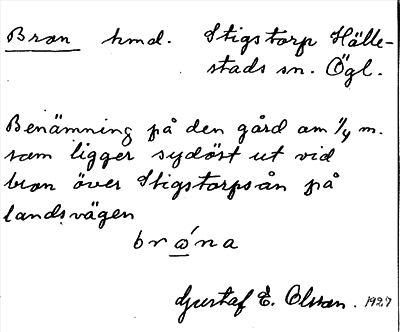 Bron hmd. Stigstorp Hälle-
stads sn. Ögl.
Benämning på den gård om 1/4 m.
som ligger sydöst ut vid
bron över Stigstorpsån på
landsvägen
brώna
Gustaf E. Olsson. 1927